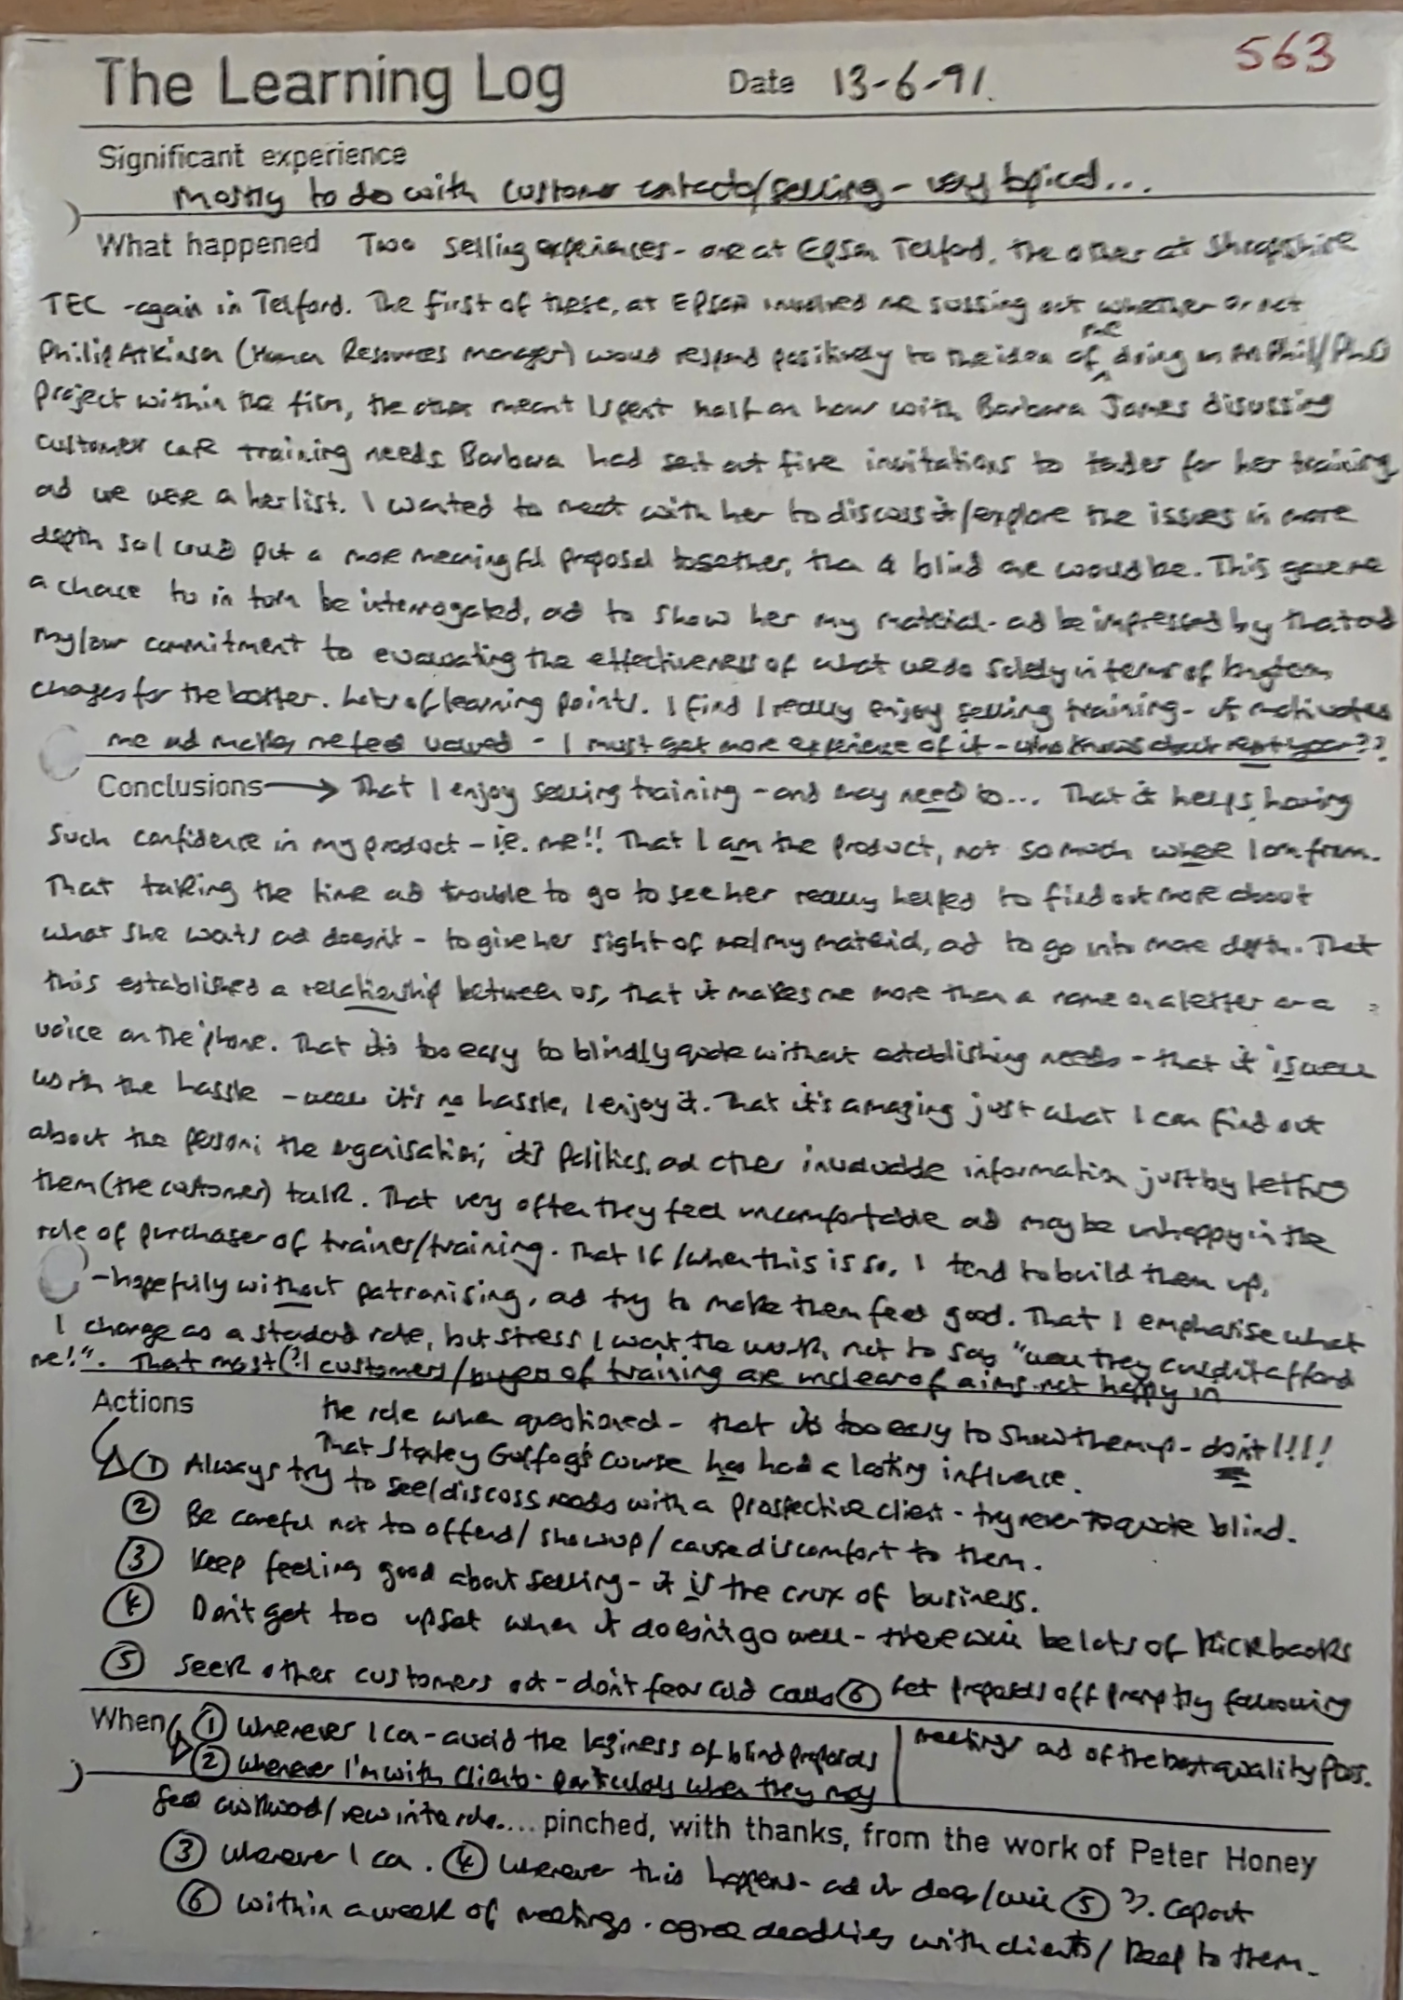 563
The Learning Log Date 13-6-91.
Significant experience
Mostly to do with customer contacts/selling - very topical...
What happened Two selling experiences - one at Epson Telford, the other at Shropshire
TEC - again in Telford. The first of these, at Epson involved me sussing out whether or not
Philip Atkinson (Human Resources Manager) would respond positively to the idea of me doing an M Phil/PhD
project within the firm, the other meant I spent half an hour with Barbara James disussing
customer care training needs. Barbara had sent out five invitations to tender for her training
and we were on her list. I wanted to meet with her to discuss it/explore the issues in more
depth so I could put a more meaningful proposal together, than a blind one would be. This gave me
a chance to in turn be interrogated, and to show her my material - and be impressed by that and
my/our commitment to evaluating the effectiveness of what we do solely in terms of long term
changes for the better. Lots of learning points. I find I really enjoy selling training - it motivates
me and makes me feel valued - I must get more experience of it - who knows about next year??
Conclusions → That I enjoy selling training - and may need to... That it helps having
such confidence in my product - i.e. me!! That I am the product, not so much where I am from.
That taking the time and trouble to go to see her really helped to find out more about
what she wants and doesn't - to give her sight of me/my material, and to go into more depth. That
this established a relationship between us, that it makes me more than a name on a letter or a
voice on the 'phone. That it's too easy to blindly quote without establishing needs - that it is well
worth the hassle - well it's no hassle, I enjoy it. That it's amazing just what I can find out
about the person; the organisation; it's politics, and other invaluable information just by letting
them (the customer) talk. That very often they feel uncomfortable and may be unhappy in the
role of purchaser of trainer/training. That if/when this is so, I tend to build them up,
- hopefully without patronising, and try to make them feel good. That I emphasise what
I charge as a standard rate, but stress I want the work, not to say "well they couldn't afford
me!". That most(?) customers/buyers of training are unclear of aims - not happy in
Actions the role when questioned - that it's too easy to show them up - don't!!!!
That Stanley Goffog's course has had a lasting influence.
① Always try to see/discuss needs with a prospective client - try never to quote blind.
② Be careful not to offend/show up/cause discomfort to them.
③ Keep feeling good about selling - it is the crux of business.
④ Don't get too upset when it doesn't go well - there will be lots of kickbacks
⑤ Seek other customers out - don't fear cold calls ⑥ Get proposals off promptly following
meetings and of the best quality poss.
When ① Wherever I can - avoid the laziness of blind proposals
② Whenever I'm with clients - particularly when they may
feel awkward/new into role....
pinched, with thanks, from the work of Peter Honey
③ Wherever I can. ④ Wherever this happens - and it does/will ⑤ ??. Cop out
⑥ Within a week of meetings - agree deadlines with clients/keep to them.